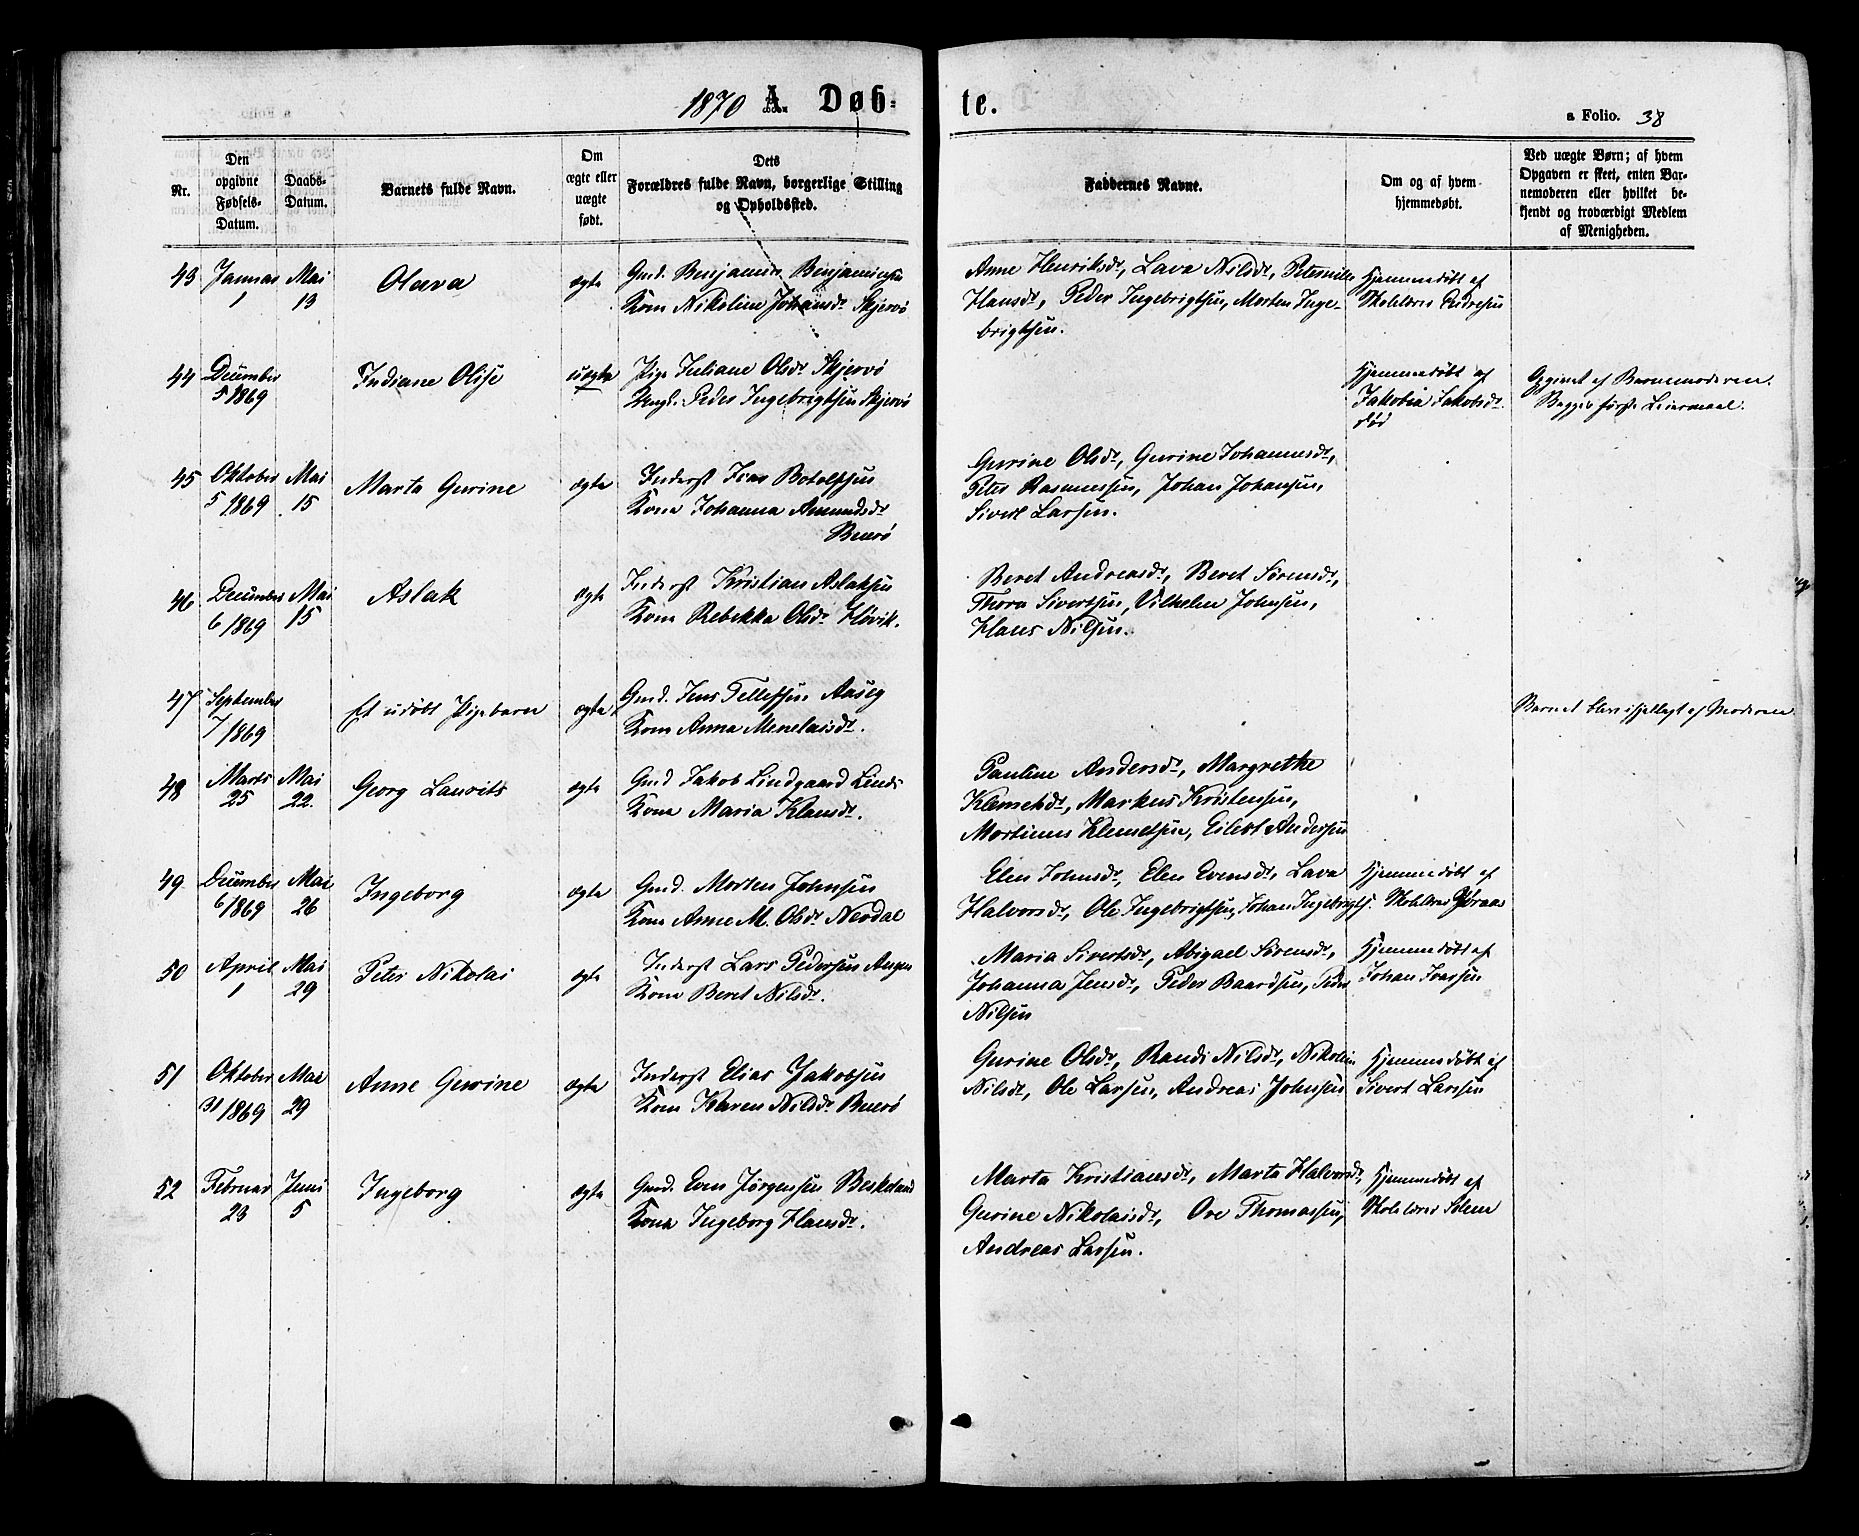 1870 A. Døb-
te.
a Folio. 38
Nr.
Den
opgivne
Fødsels-
Datum.
Daabs-
Datum.
Barnets fulde Navn.
Om
ægte eller
uægte
født.
Dets
Forældres fulde Navn, borgerlige Stilling
og Opholdssted.
Faddernes Navne.
Om og af hvem
hjemmedøbt.
Ved uægte Børn; af hvem
Opgaven er skeet, enten Bar-
nemoderen eller hvilket be-
kjendt og troværdigt Medlem
af Menigheden.
43 Januar Mai Olava ægte Gmd. Benjamin Benjaminsen
1 13 Kone Nikoline Johansdr Skjervø
Anne Henriksdr, Lava Nilsdr, Peternille
Hansdr, Peder Ingebrigtsen, Morten Inge-
brigtsen.
Hjemmedøbt af
Skolelærer Andresen
44 December Indiane Olise uægte Pige Juliane Olsdr Skjervø
5 1869 Ungk. Peder Ingebrigtsen Skjervø
Hjemmedøbt af
Jakobia Jakobsdr
død
Opgivet af Barnemoderen.
Begges første Leiermaal.
45 Oktober Mai Marta Gurine ægte Inderst Ivar Botolfsen
5 1869 15 Kone Johanna Amundsdr
Buerø
Gurine Olsdr, Gurine Johannesdr,
Peter Rasmussen, Johan Johansen,
Sivert Larsen.
46 December Mai Aslak ægte Inderst Kristian Aslaksen
6 1869 15 Kone Rebekka Olsdr Høvik.
Beret Andreasdr, Beret Sørensdr,
Thora Sivertsen, Vilhelm Johnsen,
Hans Nilsen.
47 September Et udøbt Pigebarn ægte Gmd. Jens Tellefsen Aaseg
7 1869 Kone Anna Menelaisdr.
Barnet blev ihjellagt af Moderen.
48 Marts Mai Georg Lauvits ægte Gmd Jakob Lindgaard
25 22. Kone Maria Klausdr.
Pauline Andersdr, Margrethe
Klemetsdr, Markus Kristensen,
Martinus Klemetsen, Eilert Andersen
49 December Mai Ingeborg ægte Gmd. Morten Johnsen
6 1869 26 Kone Anne M. Olsdr Nevdal
Elen Johnsdr, Elen Evensdr, Lava
Halvorsdr, Ole Ingebrigtsen, Johan Ingebrigts.
Hjemmedøbt af
Skolelærer
50 April Mai Peter Nikolai ægte Inderst Lars Pedersen
1 29 Kone Beret Nilsdr.
Maria Sivertsdr, Abigael Sørensdr,
Johanna Jensdr, Peder Baardsen, Peder
Nilsen
Hjemmedøbt af
Johan Ivarsen
51 Oktober Mai Anne Gurine ægte Inderst Elias Jakobsen
31 1869 29 Kone Karen Nilsdr Buerø
Gurine Olsdr, Randi Nilsdr, Nikoline
Nilsdr, Ole Larsen, Andreas Johnsen
Hjemmedøbt af
Sivert Larsen
52 Februar Juni Ingeborg ægte Gmd. Even Jørgensen Beskeland
23 5 Kone Ingeborg Hansdr.
Marta Kristiansdr, Marta Halvorsdr,
Gurine Nikolaisdr, Ove Thomassen,
Andreas Larsen.
Hjemmedøbt af
Skolelærer Solem